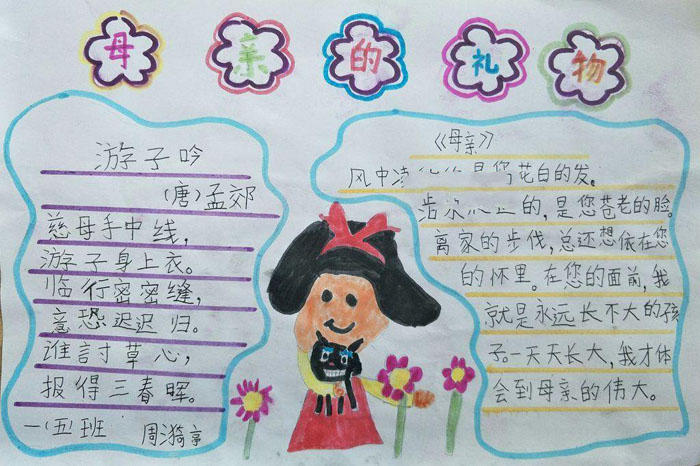 母亲的礼物
游子吟
(唐)孟郊
慈母手中线,
游子身上衣。
临行密密缝,
意恐迟迟归。
谁討草心,
报得三春晖。
一(五)班 周
《母亲》
风中 是您花白的发。
的,是您苍老的脸。
离家的步伐,总还想依在您
的怀里。在您的面前,我
就是永远长不大的孩
子。一天天长大,我才体
会到母亲的伟大。